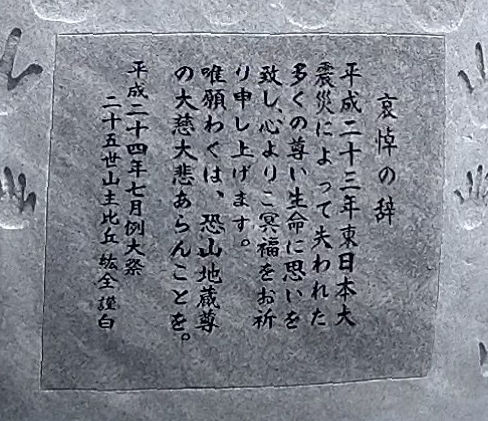 哀悼の辞
平成二十三年東日本大
震災によって失われた
多くの尊い生命に思いを
致し、心よりご冥福をお祈
り申し上げます。
唯願わくは、恐山地蔵尊
の大慈大悲あらんことを。
平成二十四年七月例大祭
二十五世山主比丘 紘全 謹白